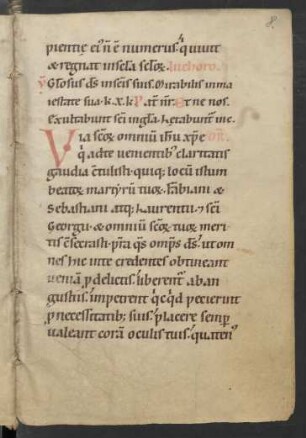 8.
pientie ei' n̄ ē numerus. q̇ uiuit
& regnat in sc̄la sc̄loꝝ.
V Gl'osus d̄s in sc̄is suis. Mirabilis in ma
iestate sua. k. x. k. Pat̄ nr̄. Et ne nos.
Exultabunt sc̄i in gl̄a. Letabunt̄ in c.
Via sc̄oꝝ omniū ih̄u xp̄e
q̇ ad te uenientib; claritatis
gaudia c̄tulisti. quiq; locū istum
beatoꝝ martyrū tuoꝝ. Fabiani &
Sebastiani atq; Laurentii. & sc̄i
Georgii. & omniū sc̄oꝝ tuoꝝ meri
tis c̄secrasti. p̄sta q̄s omp̄s d̄s. ut om
nes hic in te credentes obtineant
ueniā p delictis. liberent' ab an
gustiis. impetrent q̇cq̇d petierunt
p necessitatib; suis. placere semp̱
ualeant corā oculis tuis. quaten'